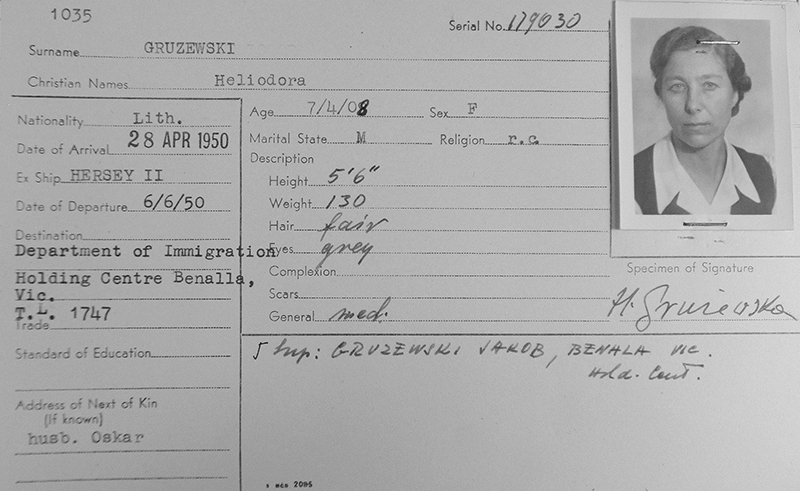 1035
Serial No. 179030
Surname GRUZEWSKI
Christian Names Heliodora
Nationality Lith.
Date of Arrival 28 APR 1950
Ex Ship HERSEY II
Date of Departure 6/6/50
Destination
Department of Immigration
Holding Centre Benalla,
Vic.
T.L. 1747
Trade
Standard of Education
Address of Next of Kin
(If known)
husb. Oskar
Age 7/4/08 Sex F
Marital State M Religion r.c.
Description
Height 5'6"
Weight 130
Hair fair
Eyes grey
Complexion
Scars
General med.
Specimen of Signature
H. Gruzewska
GRUZEWSKI JAKOB, BENALA VIC.
Hold. Cent.